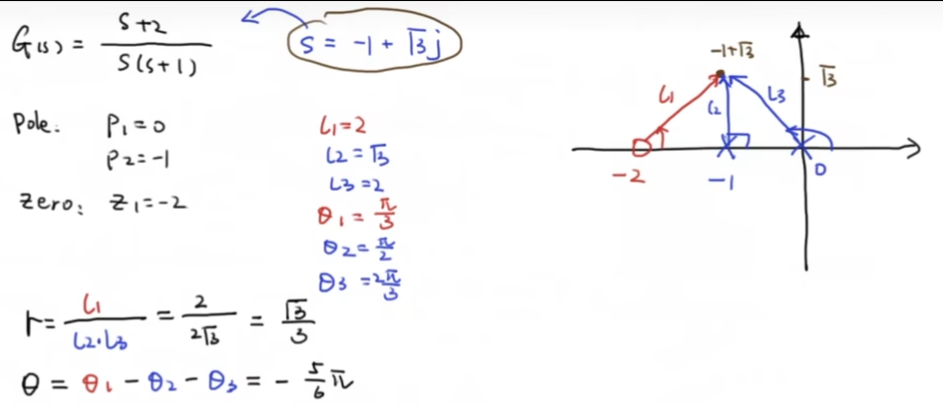 G(s) = (s+2)/(s(s+1))
s = -1 + √3j
Pole: P₁=0
P₂=-1
Zero: Z₁=-2
L₁=2
L₂=√3
L₃=2
θ₁ = π/3
θ₂ = π/2
θ₃ = 2π/3
r = L₁/(L₂·L₃) = 2/(2√3) = √3/3
θ = θ₁ - θ₂ - θ₃ = - 5/6 π
-1+√3
√3
L₁
L₂
L₃
-2
-1
0